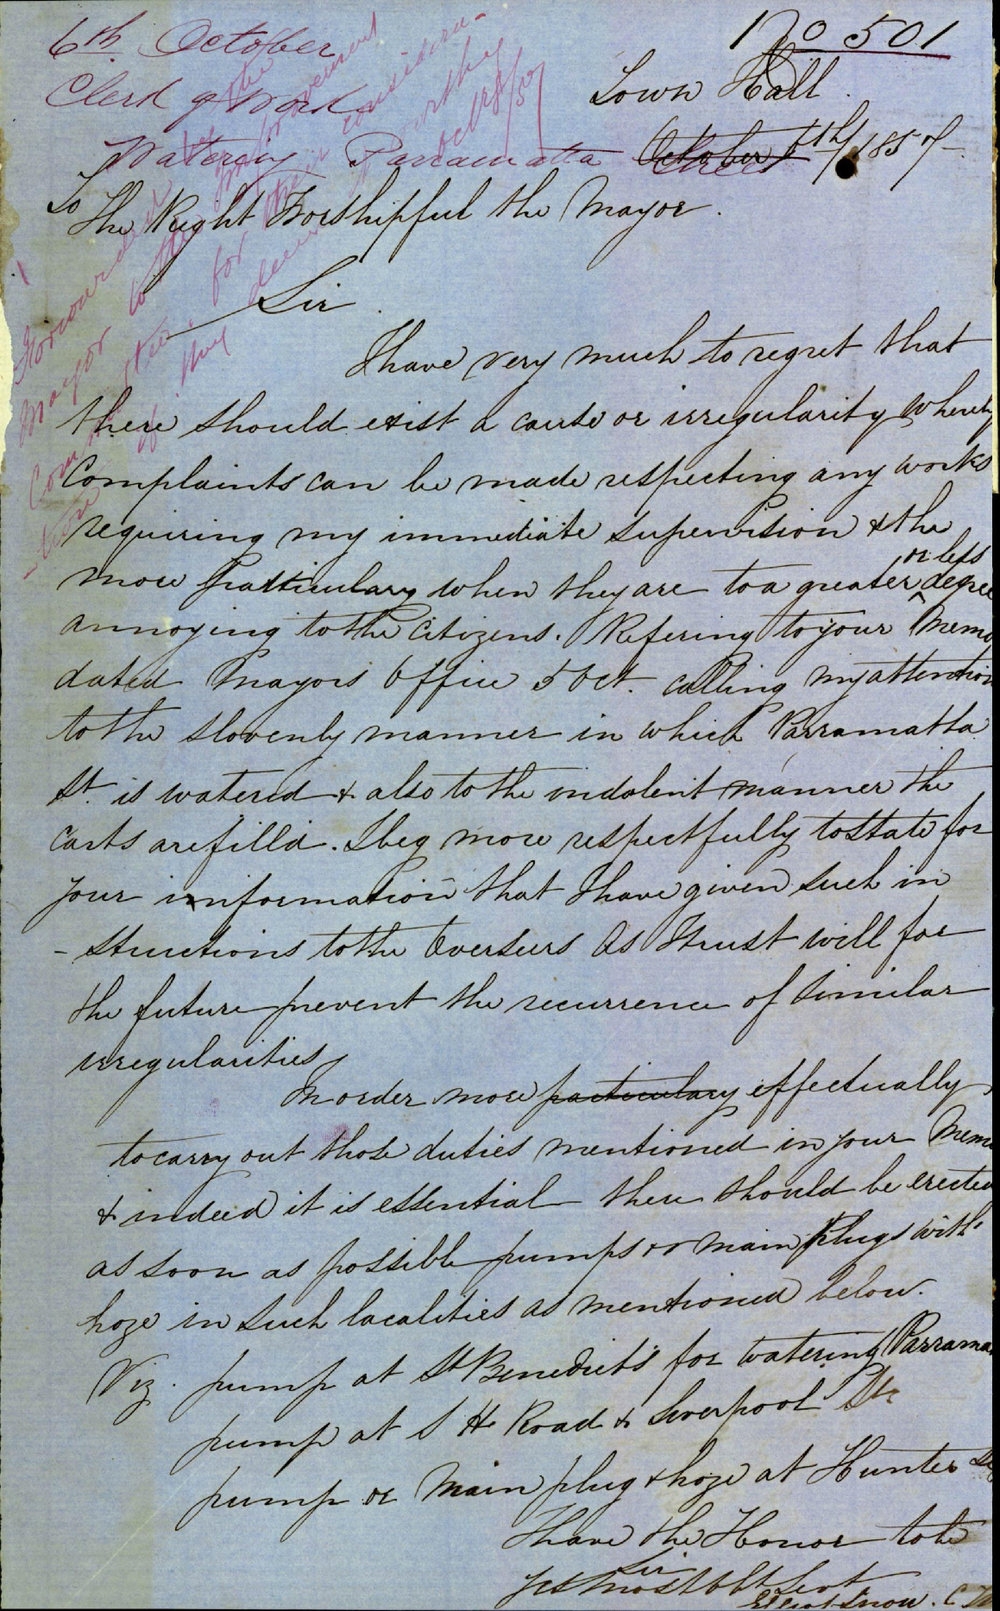 No 501
6th October
Clerk of Works
Watering Parramatta Street
Town Hall
October 6th/1857
To The Right Worshipful the Mayor.
Forwarded by the
Mayor to the Improvement
Committee for their considera-
-tion if they deem it worthy
Oct 8/57
Sir
I have very much to regret that
there should exist a cause or irregularity whereby
Complaints can be made respecting any works
requiring my immediate supervision & the
more particulary when they are to a greater or less degree
annoying to the Citizens. Refering to your Memo
dated Mayors Office 5 Oct. calling my attention
to the slovenly manner in which Parramatta
St. is watered & also to the indolent manner the
Carts are filld. I beg more respectfully to state for
your information that I have given such in
-structions to the Overseers as I trust will for
the future prevent the recurrence of similar
irregularities,
In order more particulary effectually
to carry out those duties mentioned in your Memo
& indeed it is essential there should be erected
as soon as possible pumps or main plugs with
hoze in such localities as mentioned below.
Viz. pump at St Benedict's for watering Parrama
pump at S H Road & Liverpool St
pump or Main plug & hoze at Hunter St
I have the Honor to be
Sir
Yr Most Obt Servt